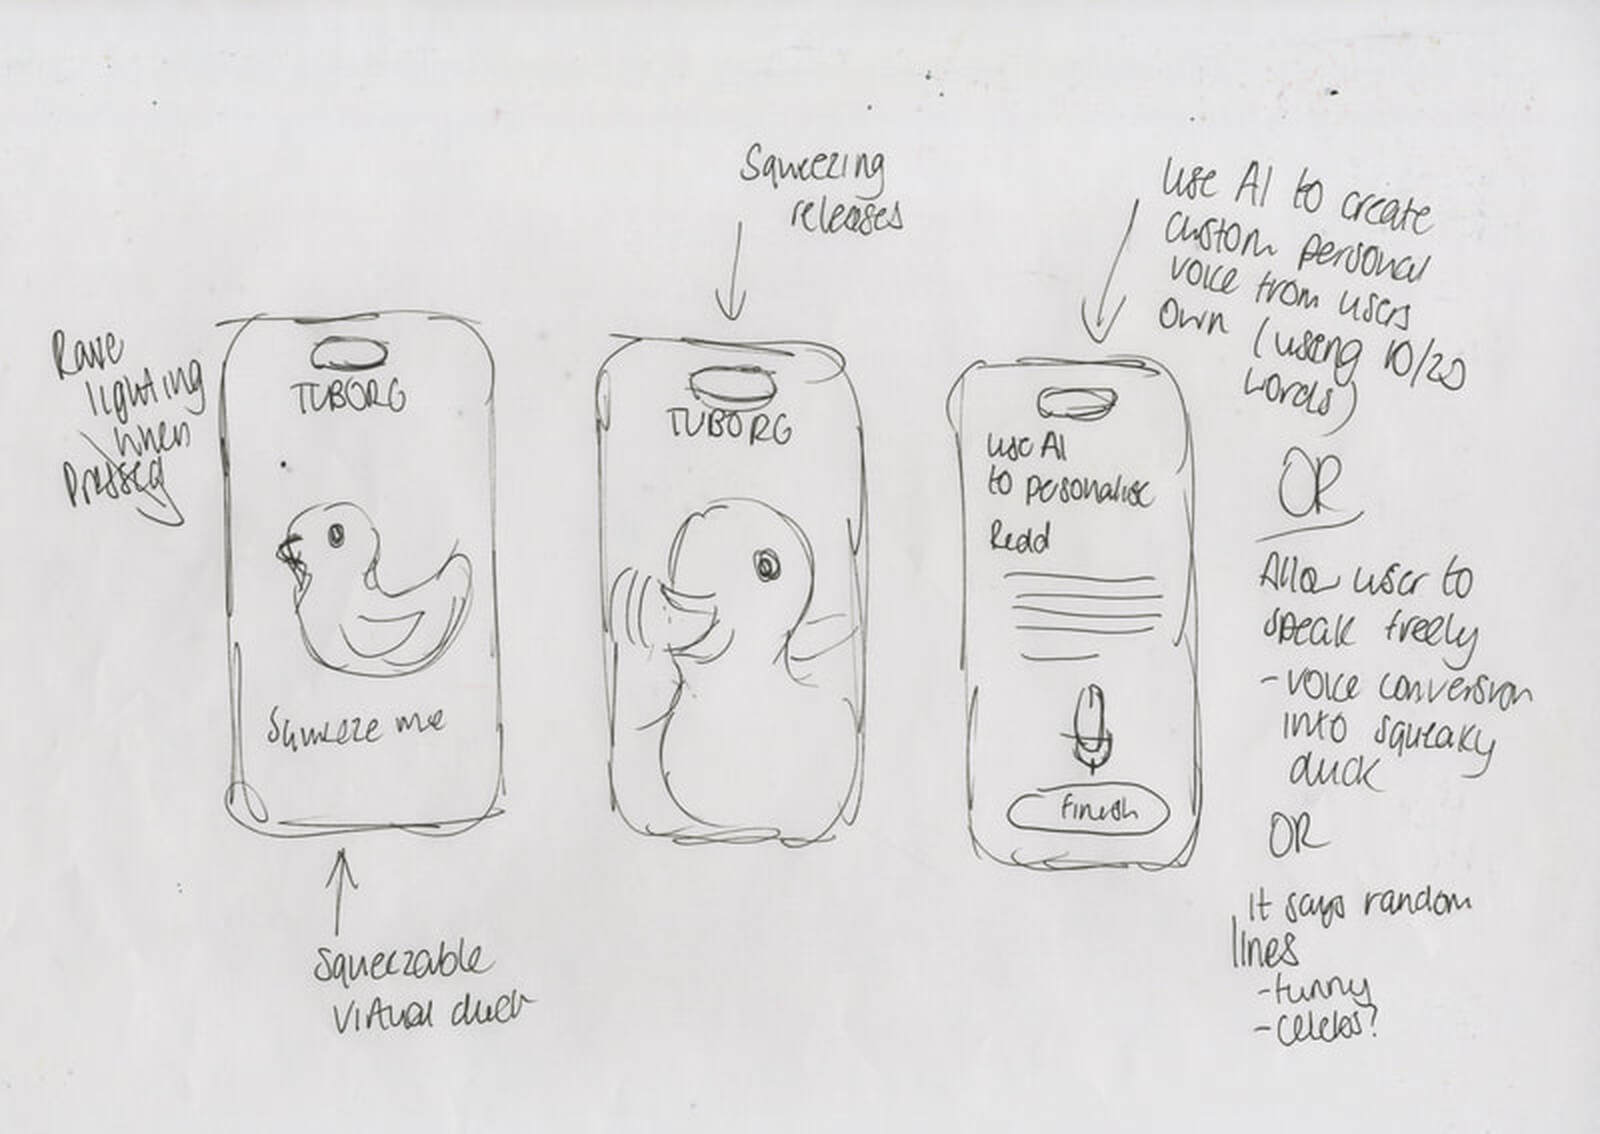 Rave
lighting
when
pressed
TUBORG
Squeeze me
Squeezable
virtual duck
Squeezing
releases
TUBORG
use AI to create
custom personal
voice from users
own (using 10/20
words)
use AI
to personalise
Read
Finish
OR
Allow user to
speak freely
- voice conversion
into squeaky
duck
OR
It says random
lines
- funny
- celebs?